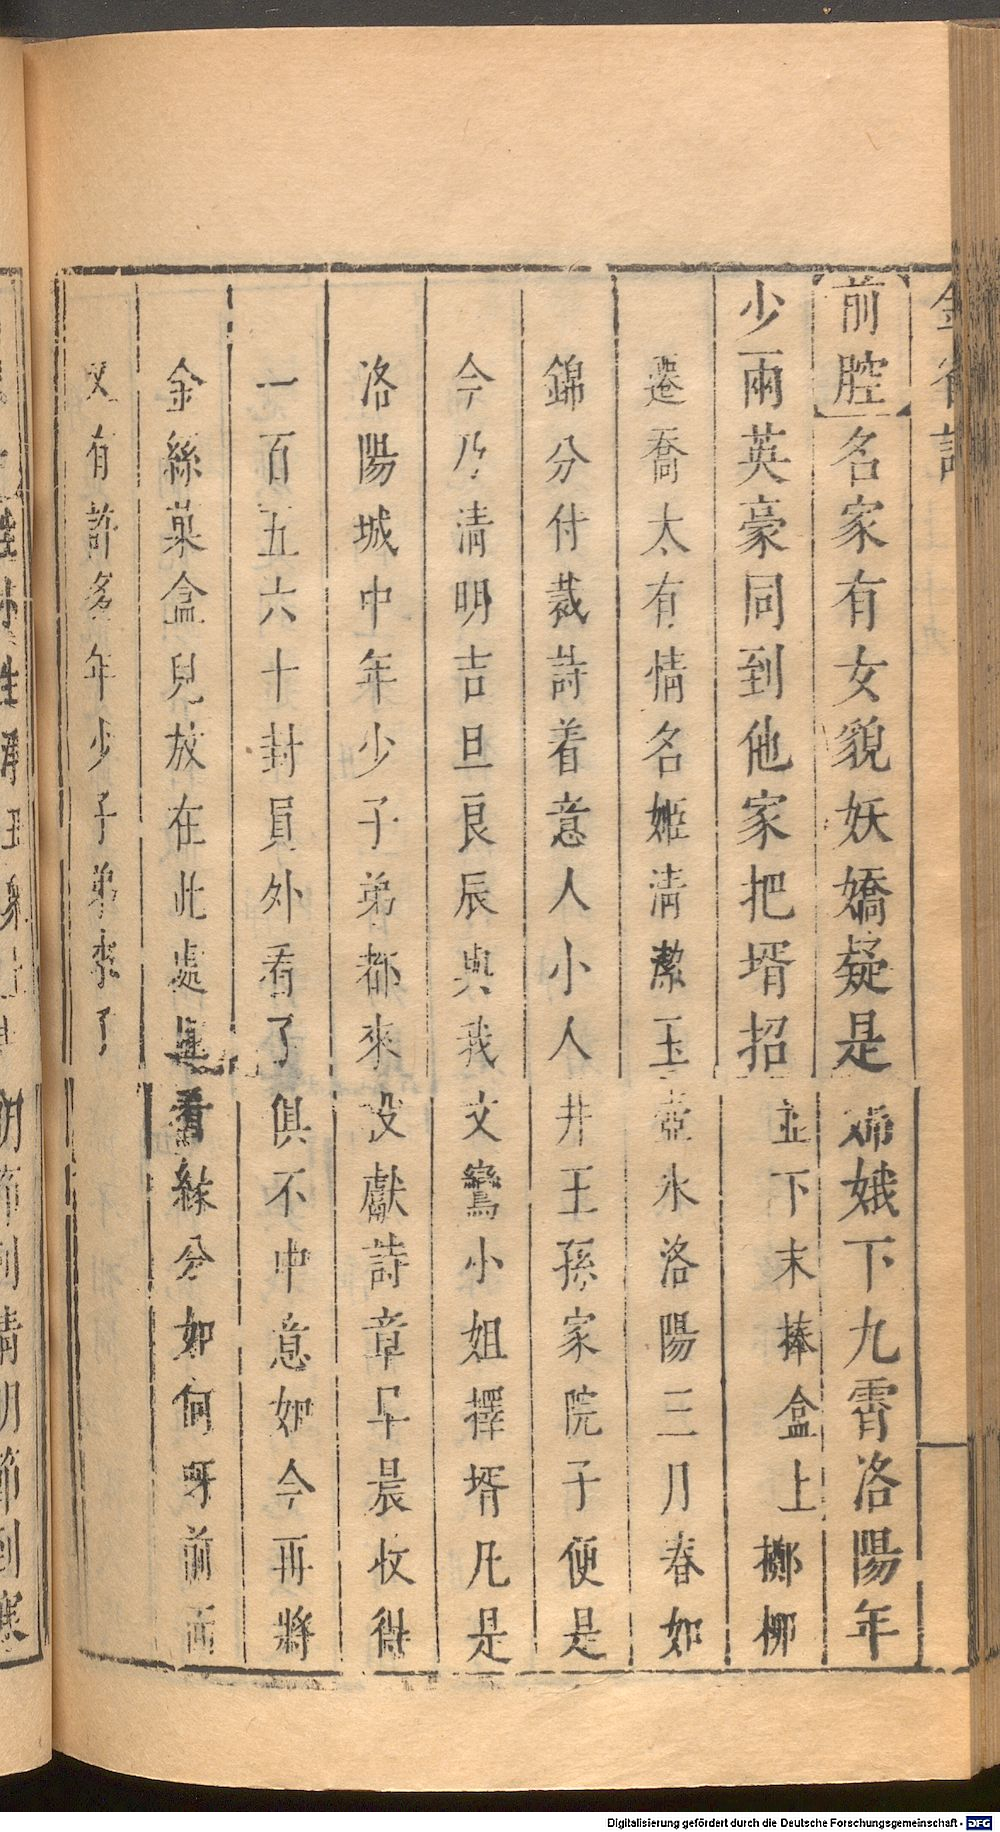 金雀記
前腔名家有女貌妖嬌疑是嫦娥下九霄洛陽年
少兩英豪同到他家把壻招 並下末捧盒上擲柳
遷喬太有情名姬淸潔玉壺氷洛陽三月春如
錦分付裁詩着意人小人井王孫家院子便是
今乃淸明吉旦良辰與我文鸞小姐擇壻凡是
洛陽城中年少子弟都來投獻詩章早晨收得
一百五六十封員外看了俱不中意如今再將
金絲菓盒兒放在此處且看緣分如何呀前面
又有許多年少子弟來了
Digitalisierung gefördert durch die Deutsche Forschungsgemeinschaft - DFG